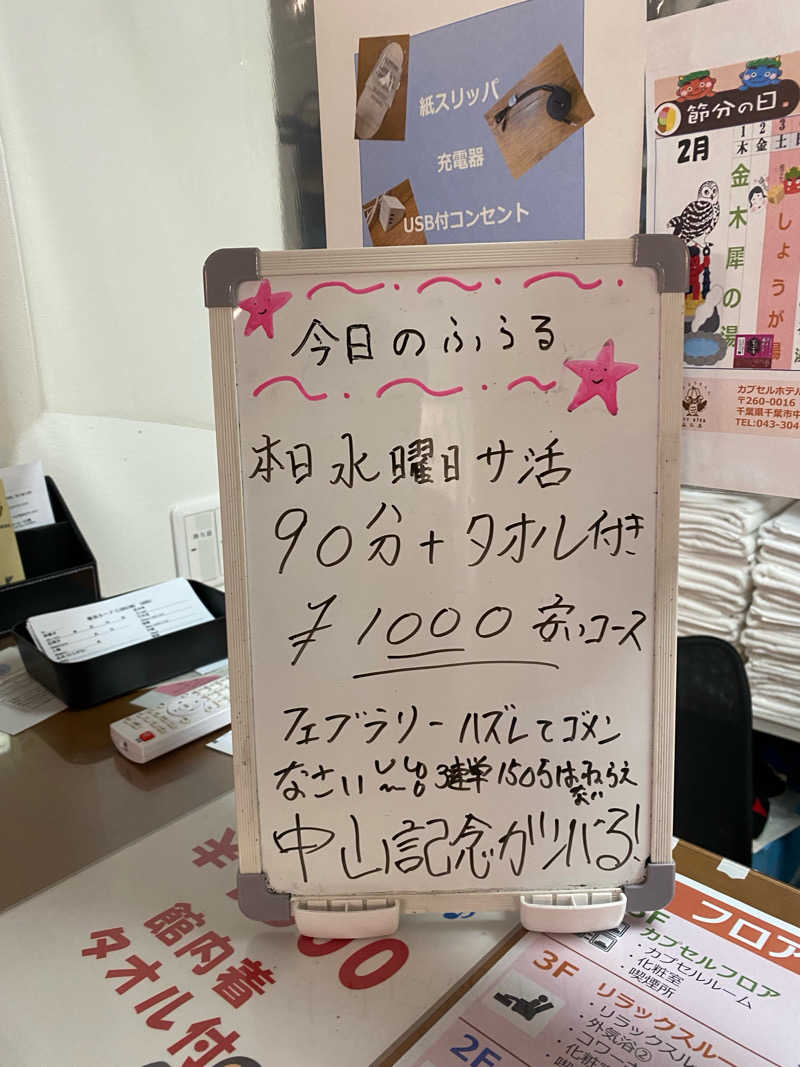 紙スリッパ
充電器
USB付コンセント
節分の日
2月
1 2 3
木 金 土
金木犀の湯
しょうが湯
カプセルホテル
〒260-0016
千葉県千葉市中
TEL:043-304
今日のふぅる
本日水曜日サ活
90分+タオル付き
¥1000安いコース
フェブラリーハズレてゴメン
なさい 3連単150万はねらえ
ない
中山記念ガンバる!
館内着
タオル付
フロア
カプセルフロア
・カプセルルーム
・化粧室
・喫煙所
3F リラックスルー
・リラックスル
・外気浴②
・コワー
・化粧
2F